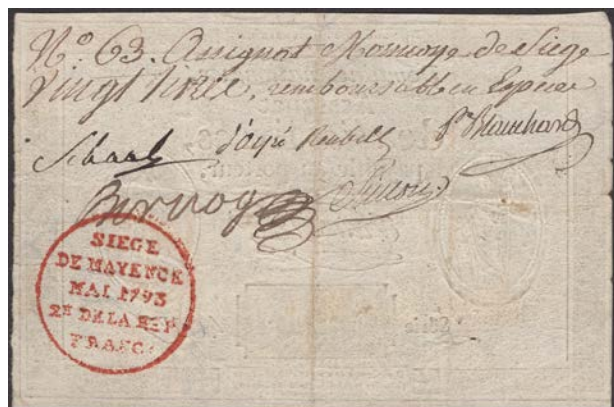 No. 63. Assignat Monnoye de Siege
vingt livres, remboursable en Especes
Schaal d'oyré Reubell Pre Blanchard
Simon
SIEGE
DE MAYENCE
MAI 1793
2E DE LA REP
FRANC.